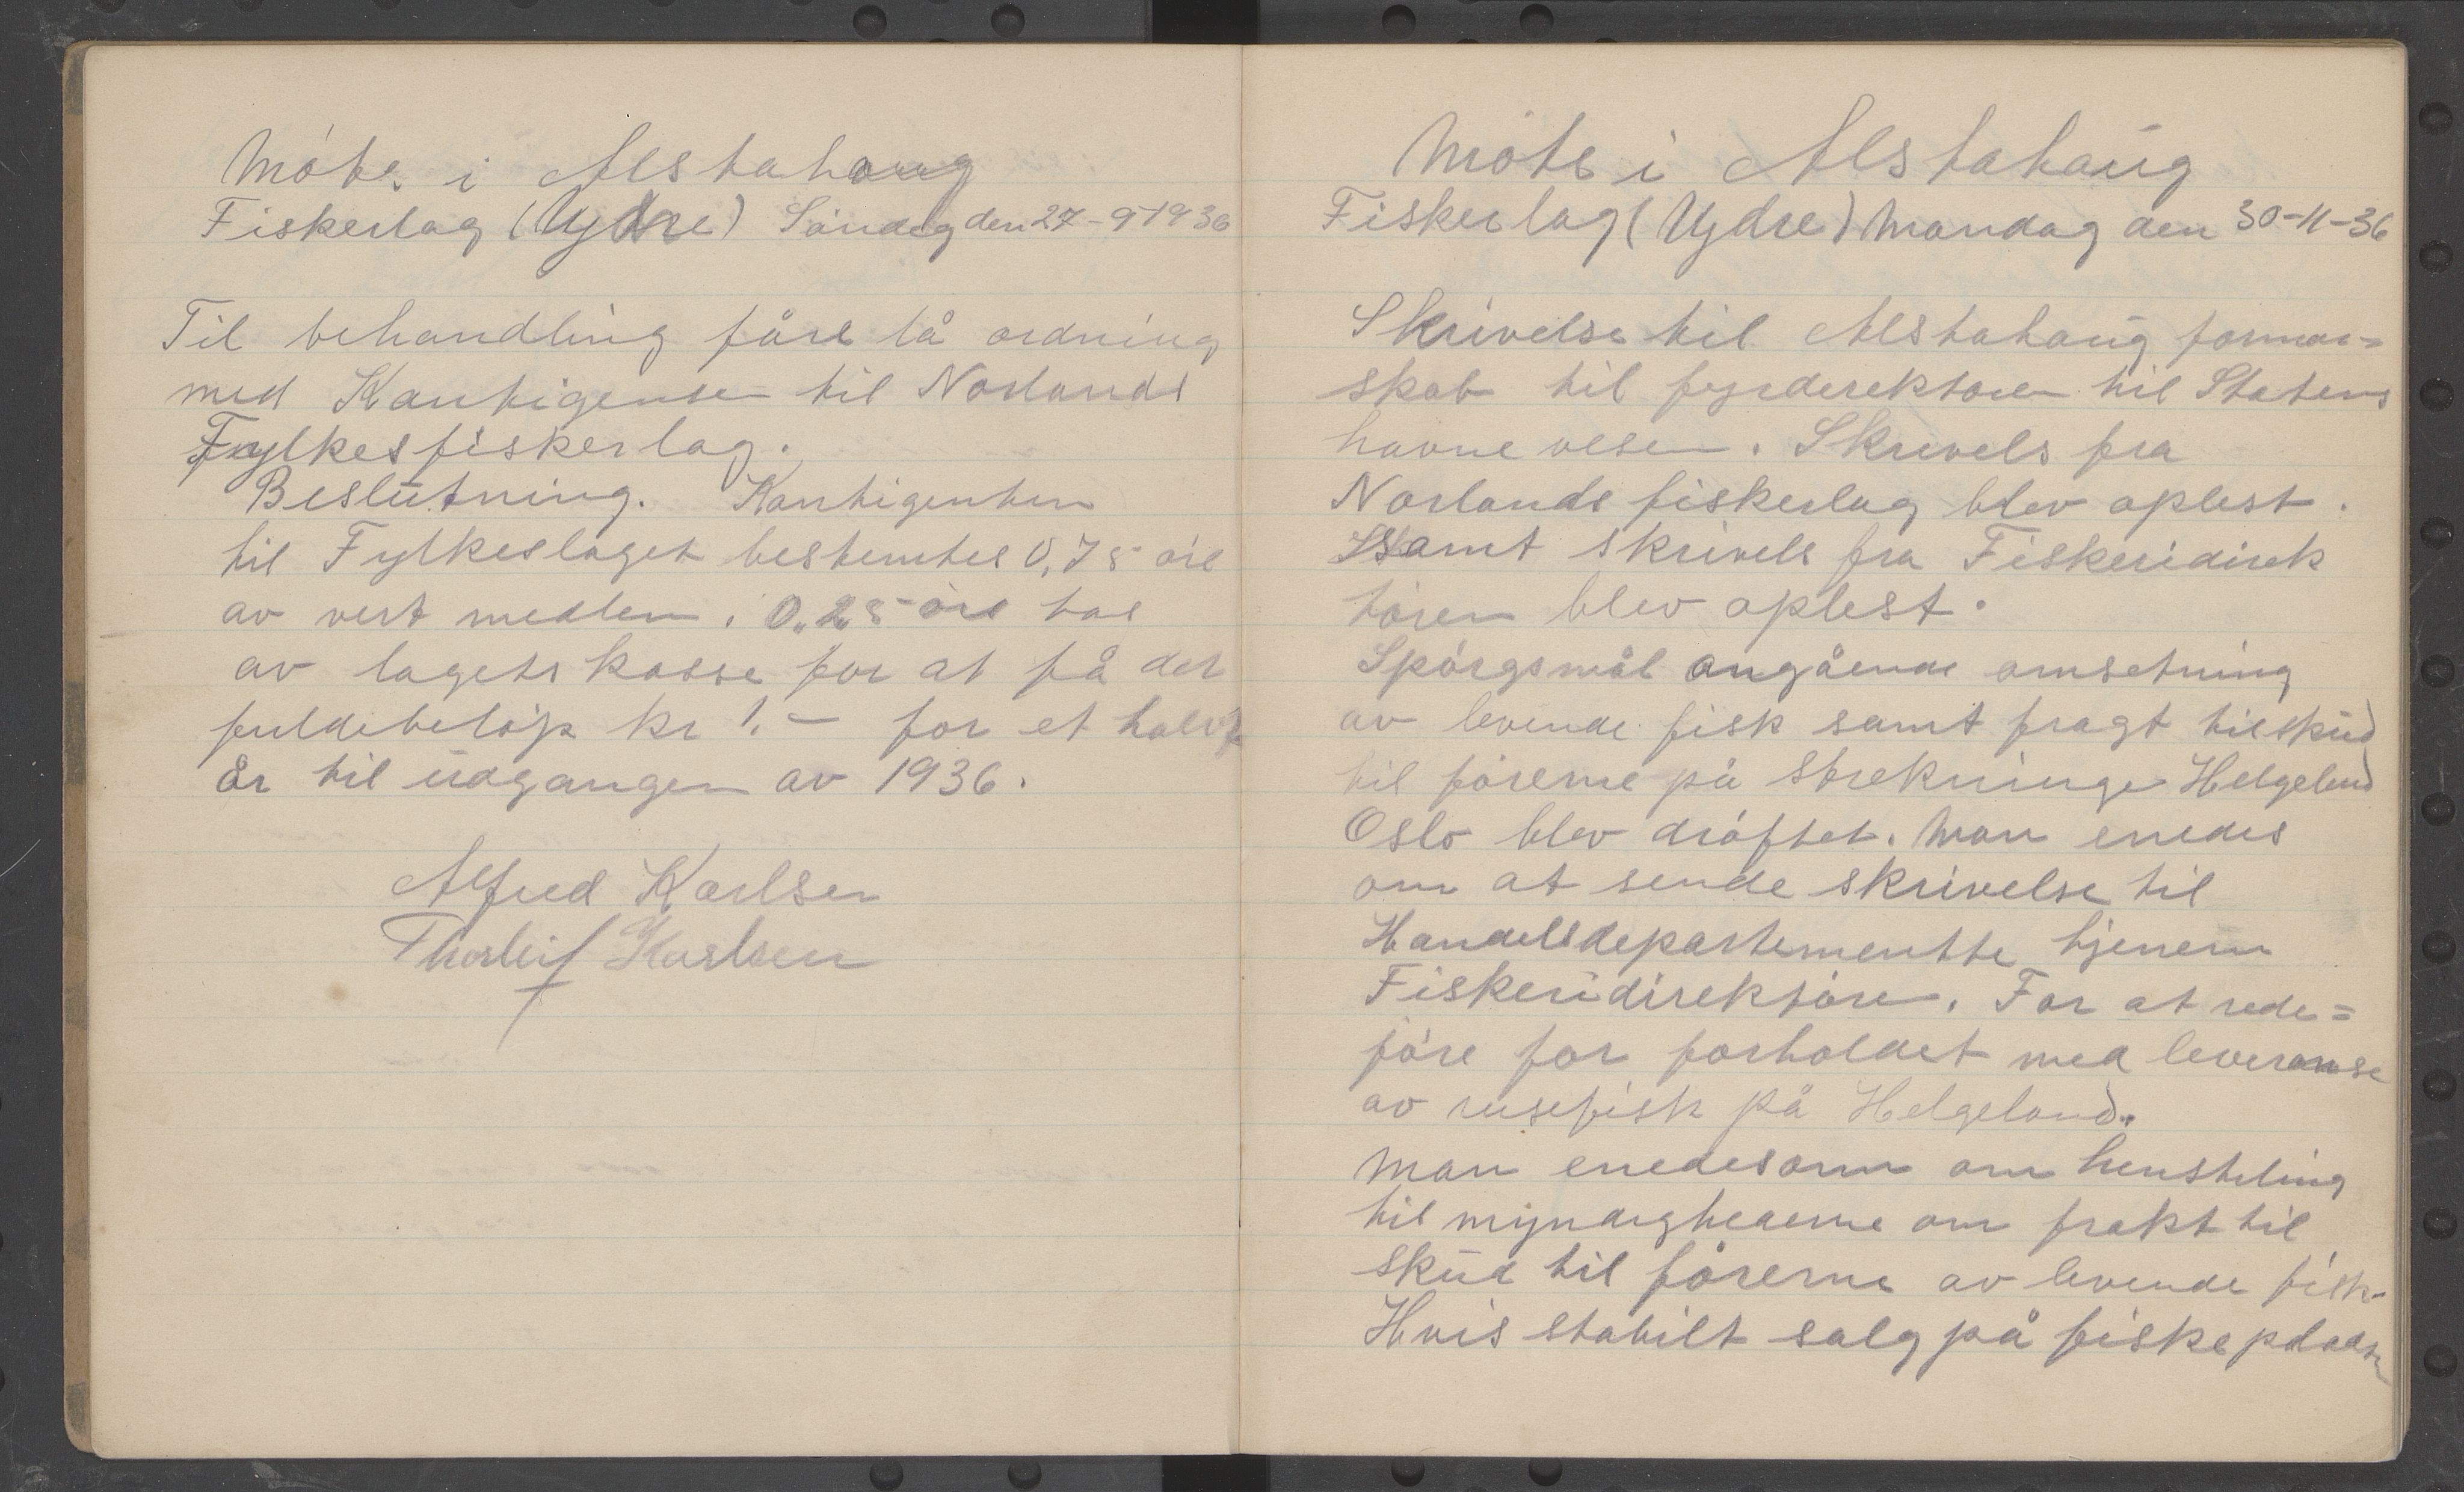 Møte i Alstahaug
Fiskerlag (Ydre) Søndag den 27-9-1936
Til behandling føre lå ordning
med Kontigensen til Norlands
Fylkesfiskerlag.
Beslutning. Kontigenten
til Fylkeslaget bestemtes 0,75 øre
av vert medlem. 0.25 øre tas
av lagets kasse for at få det
fuldebeløp kr 1.– for et halvt
år til udgangen av 1936.
Alfred Karlsen
Thorleif Karlsen
Møte i Alstahaug
Fiskerlag (Ydre) Mandag den 30-11-36
Skrivelse til Alstahaug formar=
skab til fyrderektøren til Statens
havnevesen. Skrivels fra
Norlands fiskerlag blev oplest.
Samt skrivels fra Fiskeridirek
tøren blev oplest.
Spørgsmål angående omsetning
av levende fisk samt fragt tilskud
til førerne på strekninge Helgeland
Oslo blev drøftet. Man enedes
om at sende skrivelse til
Handelsdepartementte tjenem
Fiskeridirektøre. For at rede=
jøre for forholdet med leveranse
av rusefisk på Helgeland.
Man enedes om henstiling
til myndighederne om frakt til
skud til førerne av levende fisk.
Hvis stabilt salg på fiskepladsn